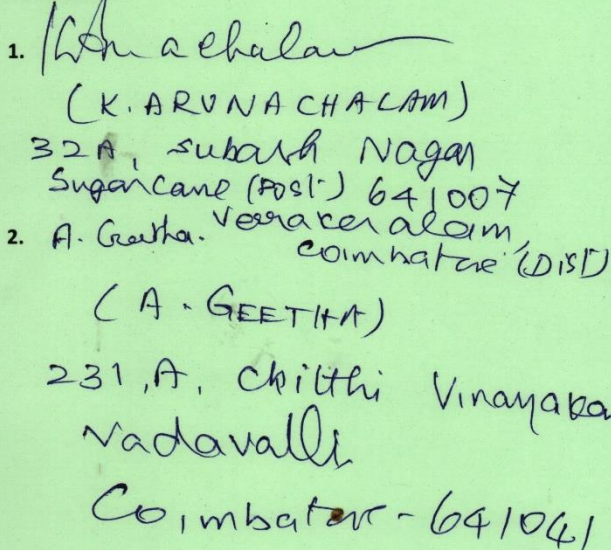 1. K Arunachalam
(K. ARUNACHALAM)
32A, Subash Nagar
Sugarcane (Post) 641007
Veerakeralam,
Coimbatore (Dist)
2. A. Geetha.
(A. GEETHA)
231, A, Chitthi Vinayaka
Vadavalli
Coimbatore - 641041